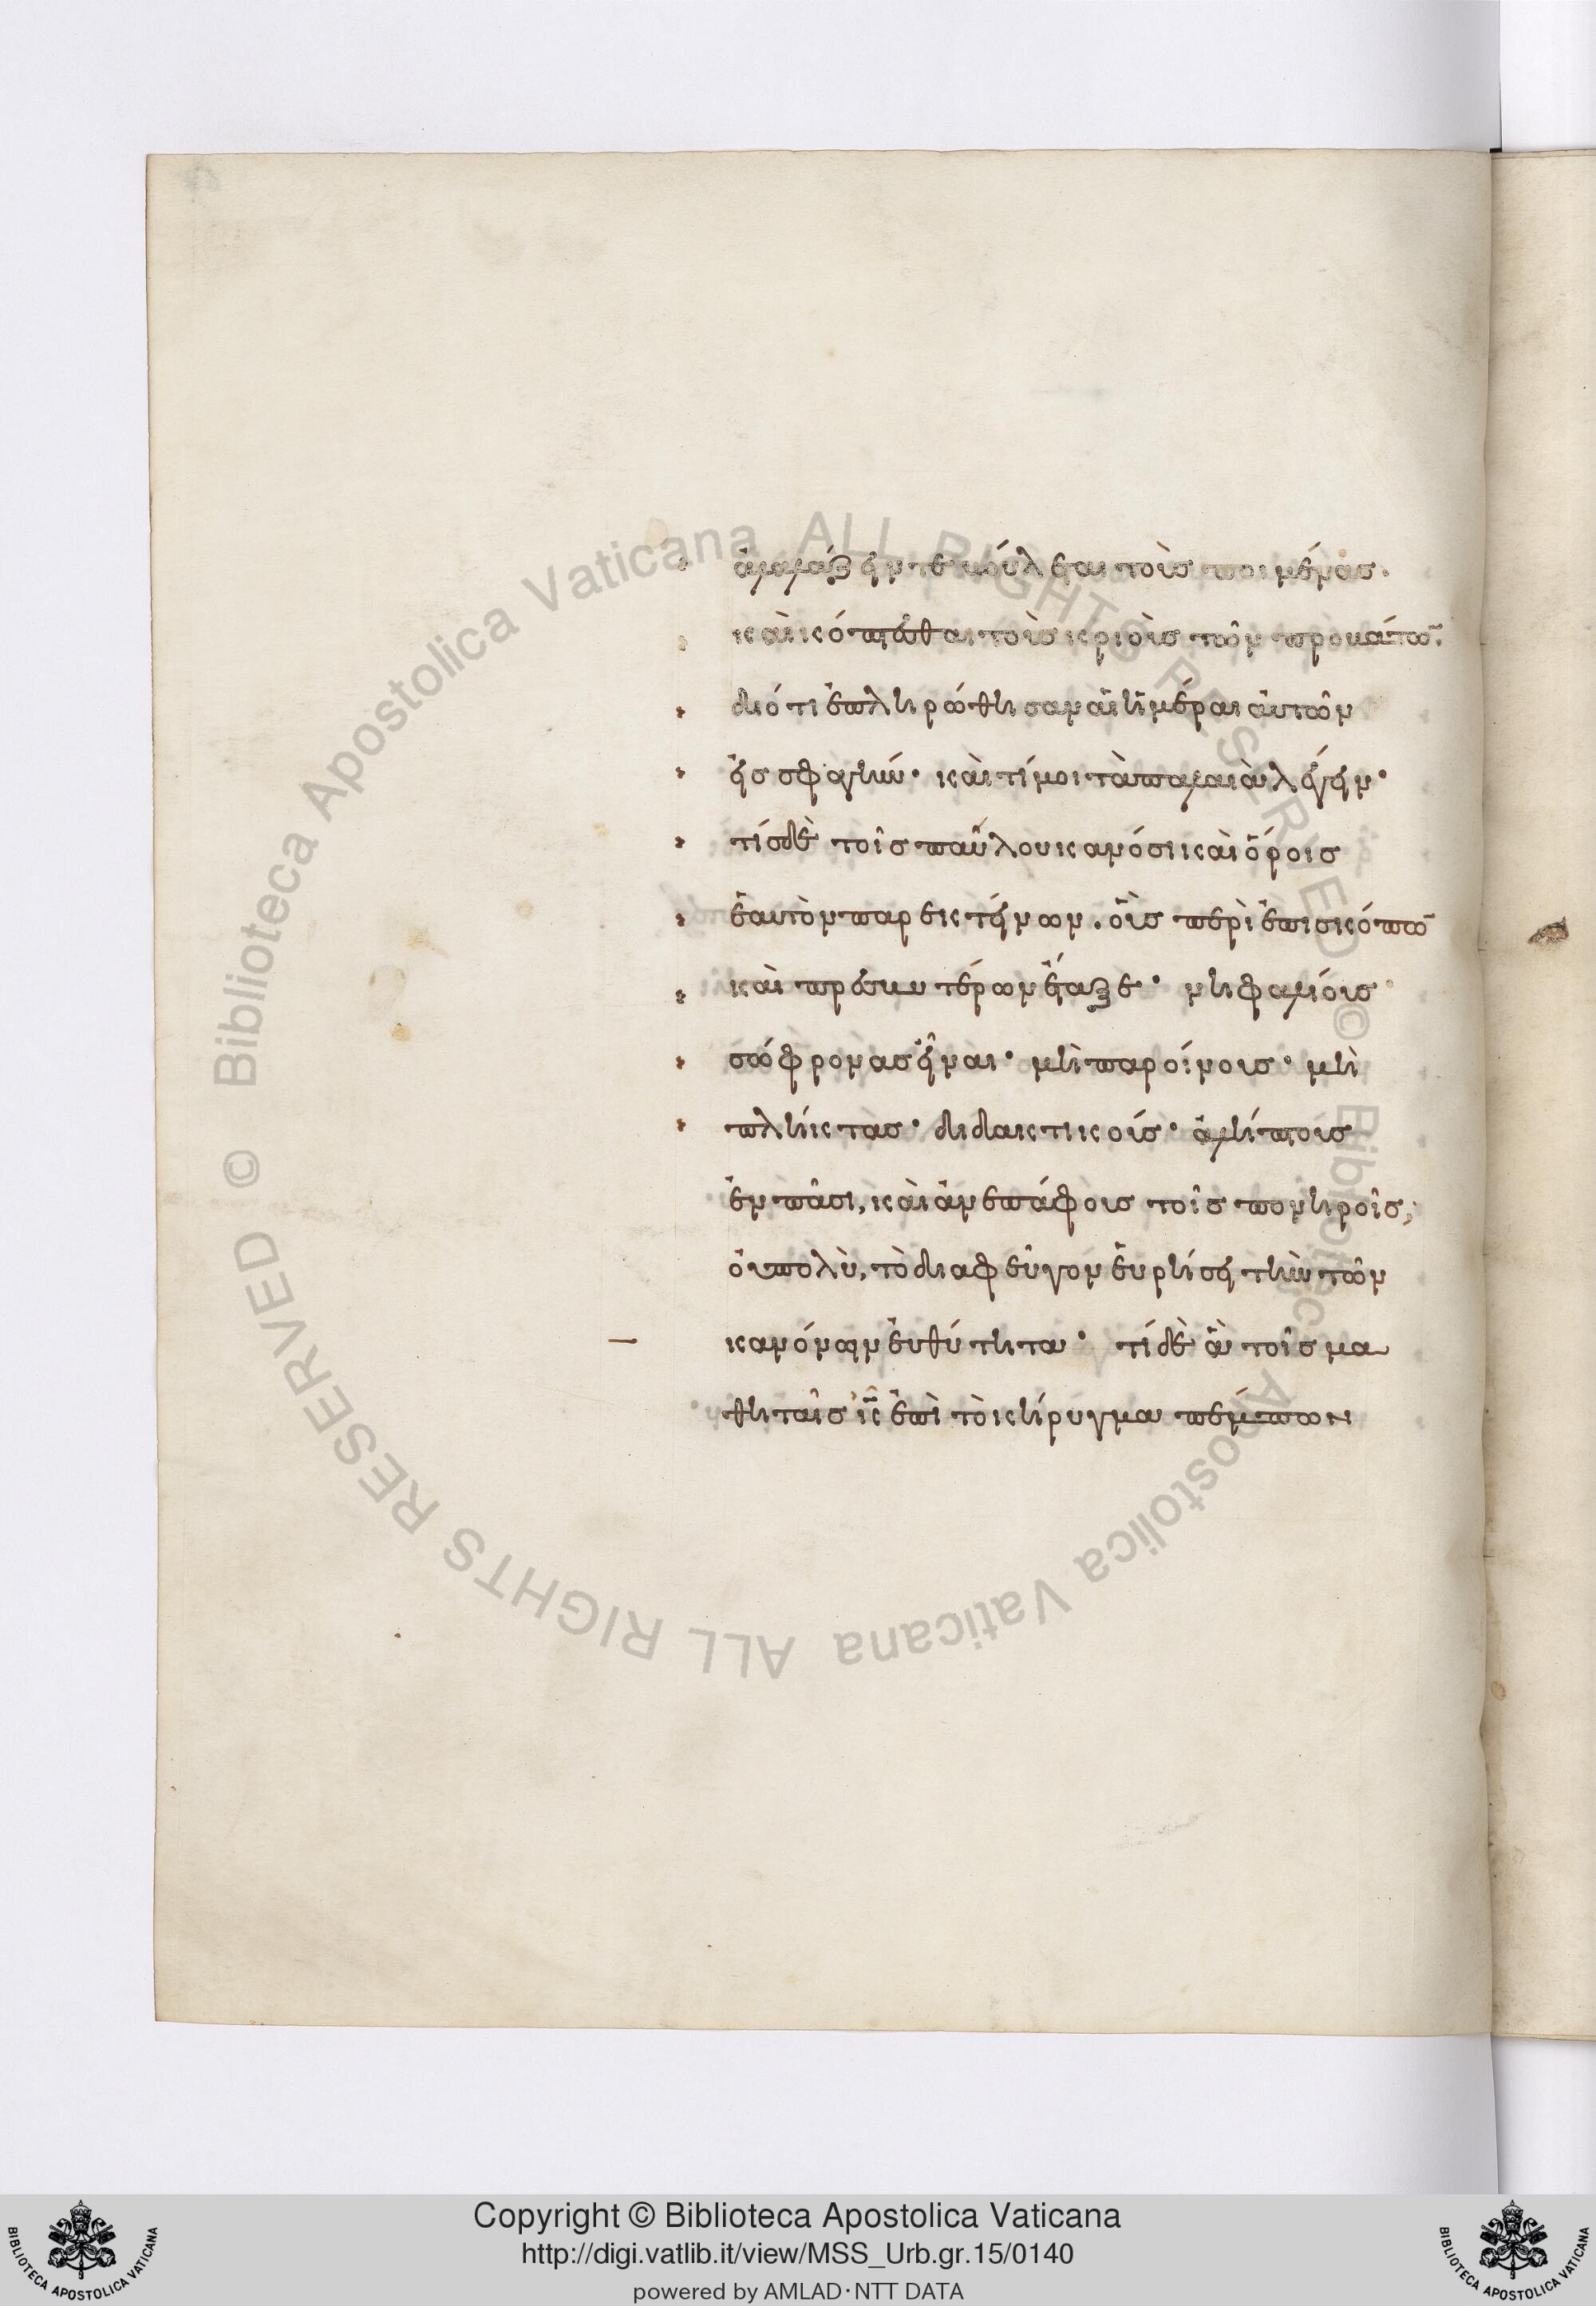 ἀλαλάζειν τε βούλεται τοὺς ποιμένας.
καὶ κόπτεσθαι τοὺς κριοὺς τῶν προβάτω̅.
διότι ἐπληρώθησαν αἱ ἡμέραι αὐτῶν
εἰς σφαγήν· καὶ τί μοι τὰ παλαιὰ λέγειν·
τίς δὲ τοῖς παύλου κανόσι καὶ ὅροις
ἑαυτὸν παρεκτείνων. οὓς περὶ ἐπισκόπω̅
καὶ πρεσβυτέρων ἔταξε· νηφαλίους
σώφρονας εἶναι· μὴ παροίνους· μὴ
πλήκτας· διδακτικούς· ἀλήπτους
ἐν πᾶσι, καὶ ἀνεπάφους τοῖς πονηροῖς,
οὐ πολὺ, τὸ διαφεῦγον εὑρήσει τὴν τῶν
κανόνων εὐθύτητα· τί δὲ ἃ τοῖς μα
θηταῖς ι̅ς̅ ἐπὶ τὸ κήρυγμα πέμπων
Copyright © Biblioteca Apostolica Vaticana
http://digi.vatlib.it/view/MSS_Urb.gr.15/0140
powered by AMLAD·NTT DATA
© Biblioteca Apostolica Vaticana ALL RIGHTS RESERVED
© Biblioteca Apostolica Vaticana ALL RIGHTS RESERVED
BIBLIOTECA APOSTOLICA VATICANA
BIBLIOTECA APOSTOLICA VATICANA